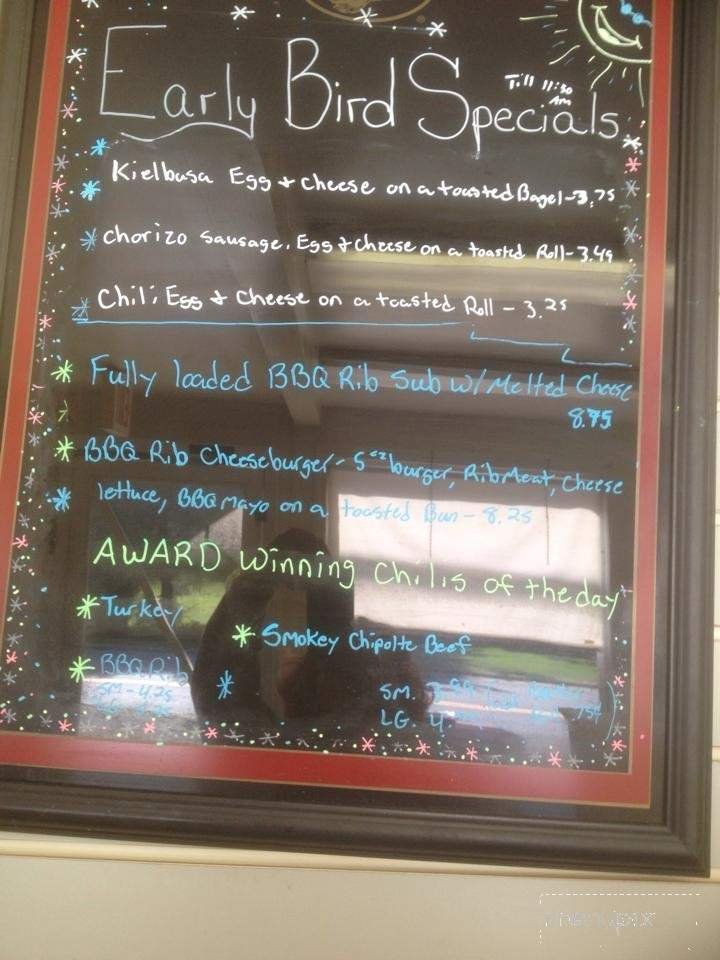 Early Bird Specials
Till 11:30
AM
Kielbasa Egg + cheese on a toasted Bagel - 3.75
Chorizo Sausage, Egg + cheese on a toasted Roll - 3.49
Chili Egg + Cheese on a toasted Roll - 3.25
Fully loaded BBQ Rib Sub w/ Melted Cheese
8.75
BBQ Rib Cheeseburger - 5 oz burger, Rib Meat, Cheese
lettuce, BBQ mayo on a toasted Bun - 8.25
AWARD Winning Chilis of the day
Turkey
Smokey Chipolte Beef
BBQ Rib
SM - 4.25
SM. 3.99
LG. 4.
menupix